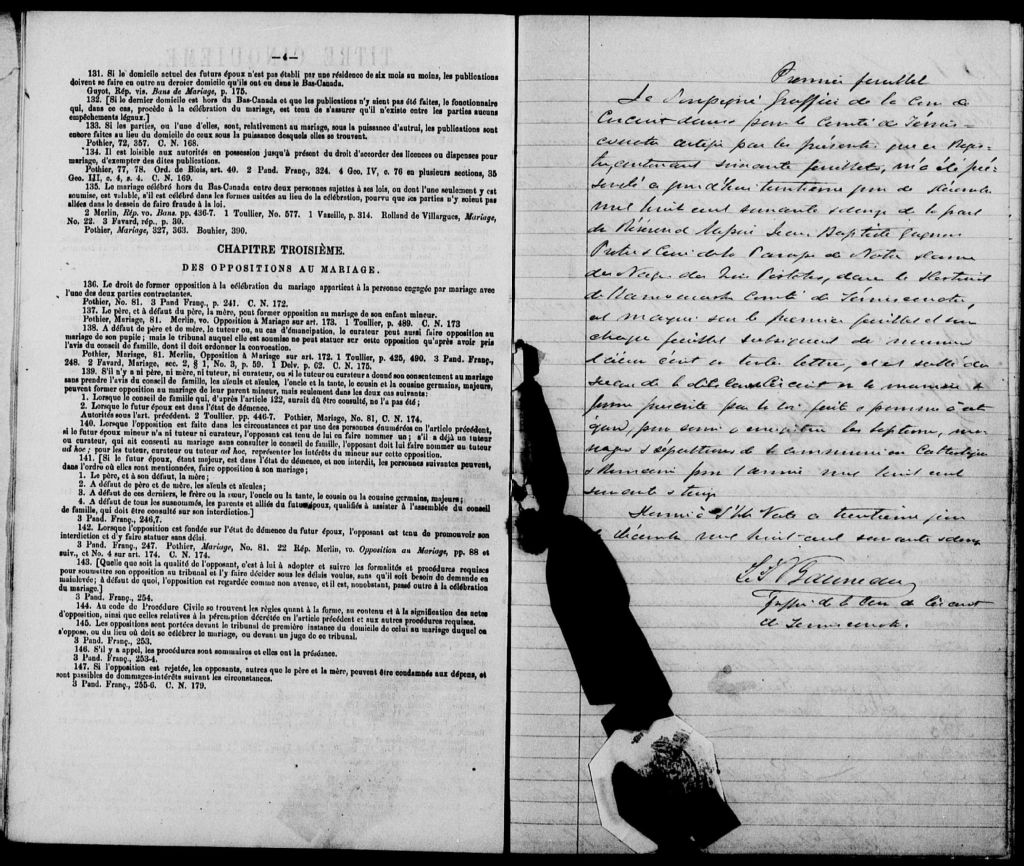 —4—
131. Si le domicile actuel des futurs époux n'est pas établi par une résidence de six mois au moins, les publications
doivent se faire en outre au dernier domicile qu'ils ont eu dans le Bas-Canada.
Guyot, Rép. vis. Bans de Mariage, p. 175.
132. [Si le dernier domicile est hors du Bas-Canada et que les publications n'y aient pas été faites, le fonctionnaire
qui, dans ce cas, procède à la célébration du mariage, est tenu de s'assurer qu'il n'existe entre les parties aucuns
empêchements légaux.]
133. Si les parties, ou l'une d'elles, sont, relativement au mariage, sous la puissance d'autrui, les publications sont
encore faites au lieu du domicile de ceux sous la puissance desquels elles se trouvent.
Pothier, 72, 357. C. N. 168.
134. Il est loisible aux autorités en possession jusqu'à présent du droit d'accorder des licences ou dispenses pour
mariage, d'exempter des dites publications.
Pothier, 77, 78. Ord. de Blois, art. 40. 2 Pand. Franç., 324. 4 Geo. IV, c. 76 en plusieurs sections, 35
Geo. III, c. 4, s. 4. C. N. 169.
135. Le mariage célébré hors du Bas-Canada entre deux personnes sujettes à ses lois, ou dont l'une seulement y est
soumise, est valable, s'il est célébré dans les formes usitées au lieu de la célébration, pourvu que les parties n'y soient pas
allées dans le dessein de faire fraude à la loi.
2 Merlin, Rép. vo. Bans. pp. 436-7. 1 Toullier, No. 577. 1 Vazeille, p. 314. Rolland de Villargues, Mariage,
No. 22. 3 Favard, rép., p. 30.
Pothier, Mariage, 327, 363. Bouhier, 390.
CHAPITRE TROISIÈME.
DES OPPOSITIONS AU MARIAGE.
136. Le droit de former opposition à la célébration du mariage appartient à la personne engagée par mariage avec
l'une des deux parties contractantes.
Pothier, No. 81. 3 Pand Franç., p. 241. C. N. 172.
137. Le père, et à défaut du père, la mère, peut former opposition au mariage de son enfant mineur.
Pothier, Mariage, 81. Merlin, vo. Opposition à Mariage sur art. 173. 1 Toullier, p. 489. C. N. 173
138. A défaut de père et de mère, le tuteur ou, au cas d'émancipation, le curateur peut aussi faire opposition au
mariage de son pupile; mais le tribunal auquel elle est soumise ne peut statuer sur cette opposition qu'après avoir pris
l'avis du conseil de famille, dont il doit ordonner la convocation.
Pothier, Mariage, 81. Merlin, Opposition à Mariage sur art. 172. 1 Toullier, p. 425, 490. 3 Pand. Franç.,
248. 2 Favard, Mariage, sec. 2, § 1, No. 3, p. 59. 1 Delv. p. 62. C. N. 175.
139. S'il n'y a ni père, ni mère, ni tuteur, ni curateur, ou si le tuteur ou curateur a donné son consentement au mariage
sans prendre l'avis du conseil de famille, les aïeuls et aïeules, l'oncle et la tante, le cousin et la cousine germains, majeurs,
peuvent former opposition au mariage de leur parent mineur, mais seulement dans les deux cas suivants:
1. Lorsque le conseil de famille qui, d'après l'article 122, aurait dû être consulté, ne l'a pas été;
2. Lorsque le futur époux est dans l'état de démence.
Autorités sous l'art. précédent. 2 Toullier. pp. 446-7. Pothier, Mariage, No. 81, C. N. 174.
140. Lorsque l'opposition est faite dans les circonstances et par une des personnes énumérées en l'article précédent,
si le futur époux mineur n'a ni tuteur ni curateur, l'opposant est tenu de lui en faire nommer un; s'il a déjà un tuteur
ou curateur, qui ait consenti au mariage sans consulter le conseil de famille, l'opposant doit lui faire nommer un tuteur
ad hoc; pour les tuteur, curateur ou tuteur ad hoc, représenter les intérêts du mineur sur cette opposition.
141. [Si le futur époux, étant majeur, est dans l'état de démence, et non interdit, les personnes suivantes peuvent,
dans l'ordre où elles sont mentionnées, faire opposition à son mariage;
1. Le père, et à son défaut, la mère;
2. A défaut de père et de mère, les aïeuls et aïeules;
3. A défaut de ces derniers, le frère ou la sœur, l'oncle ou la tante, le cousin ou la cousine germains, majeurs;
4. A défaut de tous les susnommés, les parents et alliés du futur époux, qualifiés à assister à l'assemblée du conseil
de famille, qui doit être consulté sur son interdiction.]
3 Pand. Franç., 246,7.
142. Lorsque l'opposition est fondée sur l'état de démence du futur époux, l'opposant est tenu de promouvoir son
interdiction et d'y faire statuer sans délai.
3 Pand. Franç., 247. Pothier, Mariage, No. 81. 22 Rép. Merlin, vo. Opposition au Mariage, pp. 88 et
suiv., et No. 4 sur art. 174. C. N. 174.
143. [Quelle que soit la qualité de l'opposant, c'est à lui à adopter et suivre les formalités et procédures requises
pour soumettre son opposition au tribunal et l'y faire décider sous les délais voulus, sans qu'il soit besoin de demande en
mainlevée; à défaut de quoi, l'opposition est regardée comme non avenue, et il est, nonobstant, passé outre à la célébration
du mariage.]
3 Pand. Franç., 254.
144. Au code de Procédure Civile se trouvent les règles quant à la forme, au contenu et à la signification des actes
d'opposition, ainsi que celles relatives à la péremption décrétée en l'article précédent et aux autres procédures requises.
145. Les oppositions sont portées devant le tribunal de première instance du domicile de celui au mariage duquel on
s'oppose, ou du lieu où doit se célébrer le mariage, ou devant un juge de ce tribunal.
3 Pand. Franç., 253.
146. S'il y a appel, les procédures sont sommaires et elles ont la préséance.
3 Pand. Franç., 253-4.
147. Si l'opposition est rejetée, les opposants, autres que le père et la mère, peuvent être condamnés aux dépens, et
sont passibles de dommages-intérêts suivant les circonstances.
3 Pand. Franç., 255-6. C. N. 179.
Premier feuillet
Le Soussigné Greffier de la Cour de
Circuit dans pour le Comté de Témis-
couata certifie par les présentes que ce Régis-
tre contenant soixante feuillets, m'a été pré-
senté aujourd'hui trentième jour de Décembre
mil huit cent soixante & douze de la part
de Révérend Messire Jean Baptiste Gagnon
Prêtre Curé de la Paroisse de Notre Dame
des Neiges des Trois Pistoles, dans le District
de Kamouraska Comté de Témiscouata,
et marqué sur le premier feuillet et sur
chaque feuillet subséquent du numéro
d'icieux écrit en toutes lettres, et est scellé du
sceau de la dite Cour de Circuit en la manière &
forme prescrite par la loi faite & pourvue à cet
égard, pour servir à enregistrer les baptêmes, ma-
riages & sépultures de la communion Catholique
& Romaine pour l'année mil huit cent
soixante & treize
Donné à l'Isle Verte ce trentième jour
de Décembre mil huit cent soixante & douze
Greffier de la Cour de Circuit
de Témiscouata.